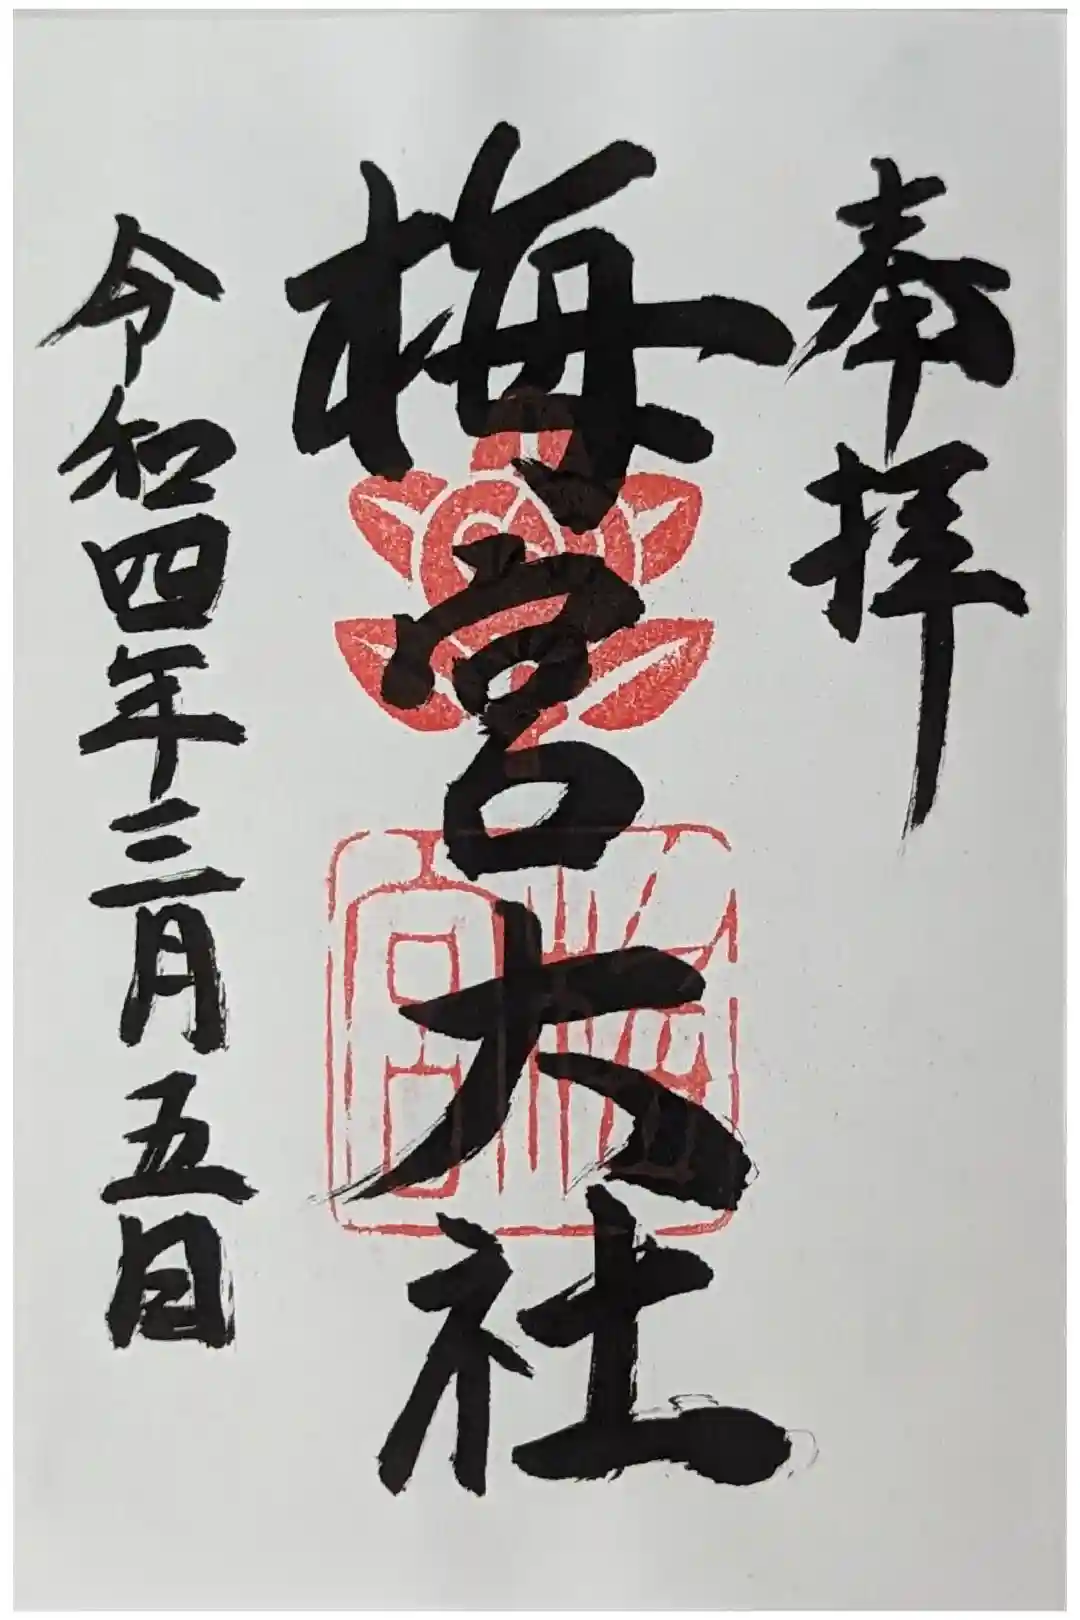 奉拝
梅宮大社
令和四年三月五日